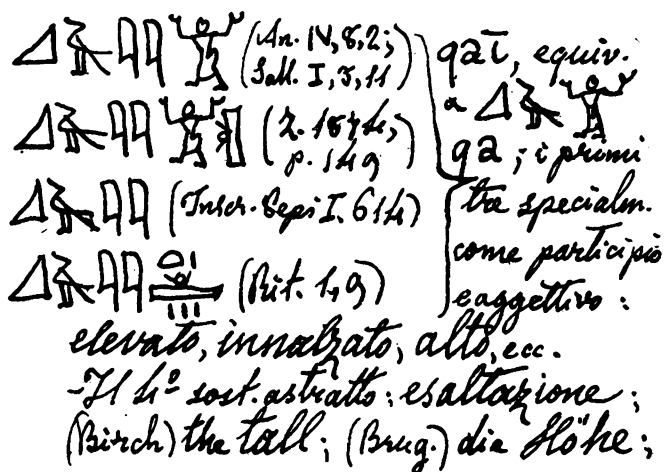 𓈎𓄿𓇋𓇋𓀠 (An. IV, 8, 2;
Sall. I, 3, 11)
𓈎𓄿𓇋𓇋𓀠 (Z. 1874,
p. 149
𓈎𓄿𓇋𓇋 (Inscr. Sepi I. 614)
𓈎𓄿𓇋𓇋 (Rit. 1, 9)
qaī, equiv.
a 𓈎𓄿𓀠
qa; i primi
tre specialm.
come participio
e aggettivo:
elevato, innalzato, alto, ecc.
- Il 4º sost. astratto: esaltazione;
(Birch) the tall; (Brug.) die Höhe;